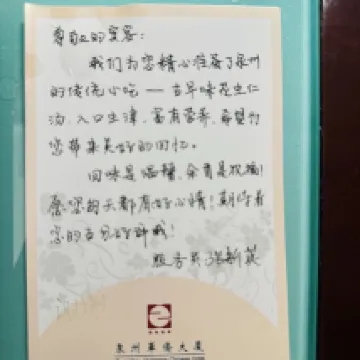 尊敬的宾客:
我们为您精心准备了泉州
的传统小吃——古早味花生仁
汤,入口生津,富有营养,希望为
您带来美好的回忆。
回味是温馨,余香是祝福!
愿您每天都有好心情!期待着
您的五分好评哦!
服务员
泉州华侨大厦